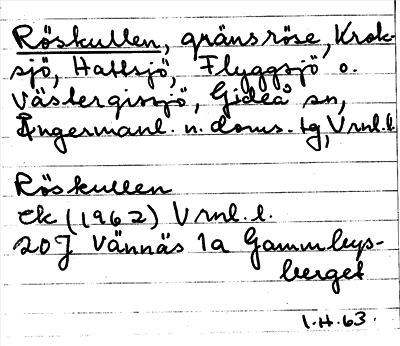 Röskullen, gränsröse, Krok-
sjö, Hallsjö, Flyggsjö o.
Västergissjö, Gideå sn,
Ångermanl. n. doms. tg, Vrnl.l.
Röskullen
Ek (1962) Vrnl. l.
20J Vännäs 1a Gammbys-
berget
1.H.63.